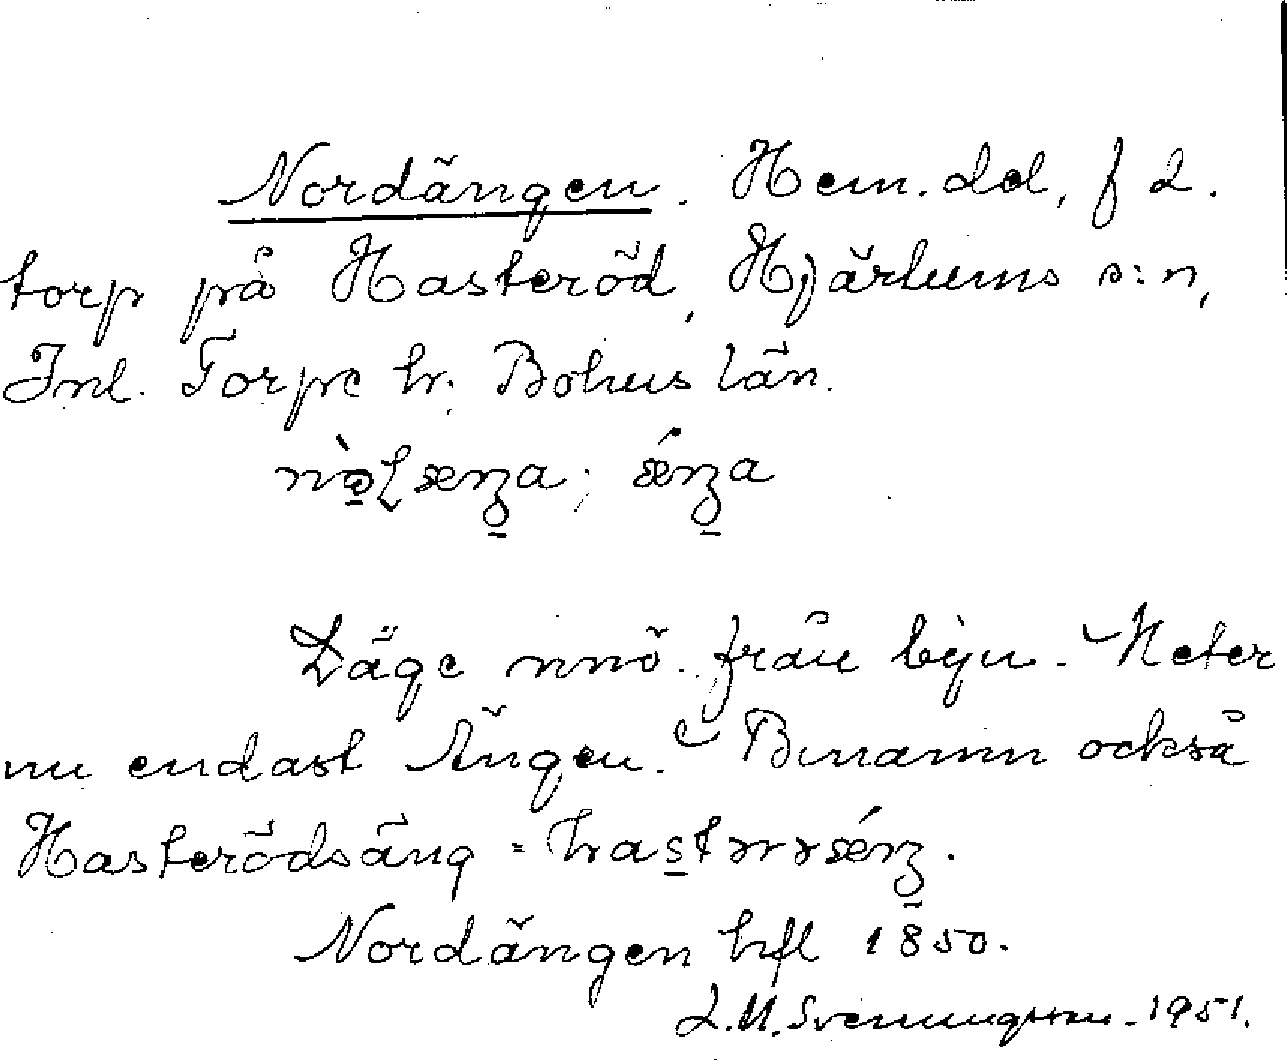 Nordängen. Hem.del, f d.
torp på Hasteröd, Hjärtums s:n,
Inl. Torpe hr. Bohus län.
Läge nnö. från byn. Heter
nu endast Ängen. Binamn också
Hasterödsäng =
Nordängen hfl 1850.
L.M. Svenungsson 1951.